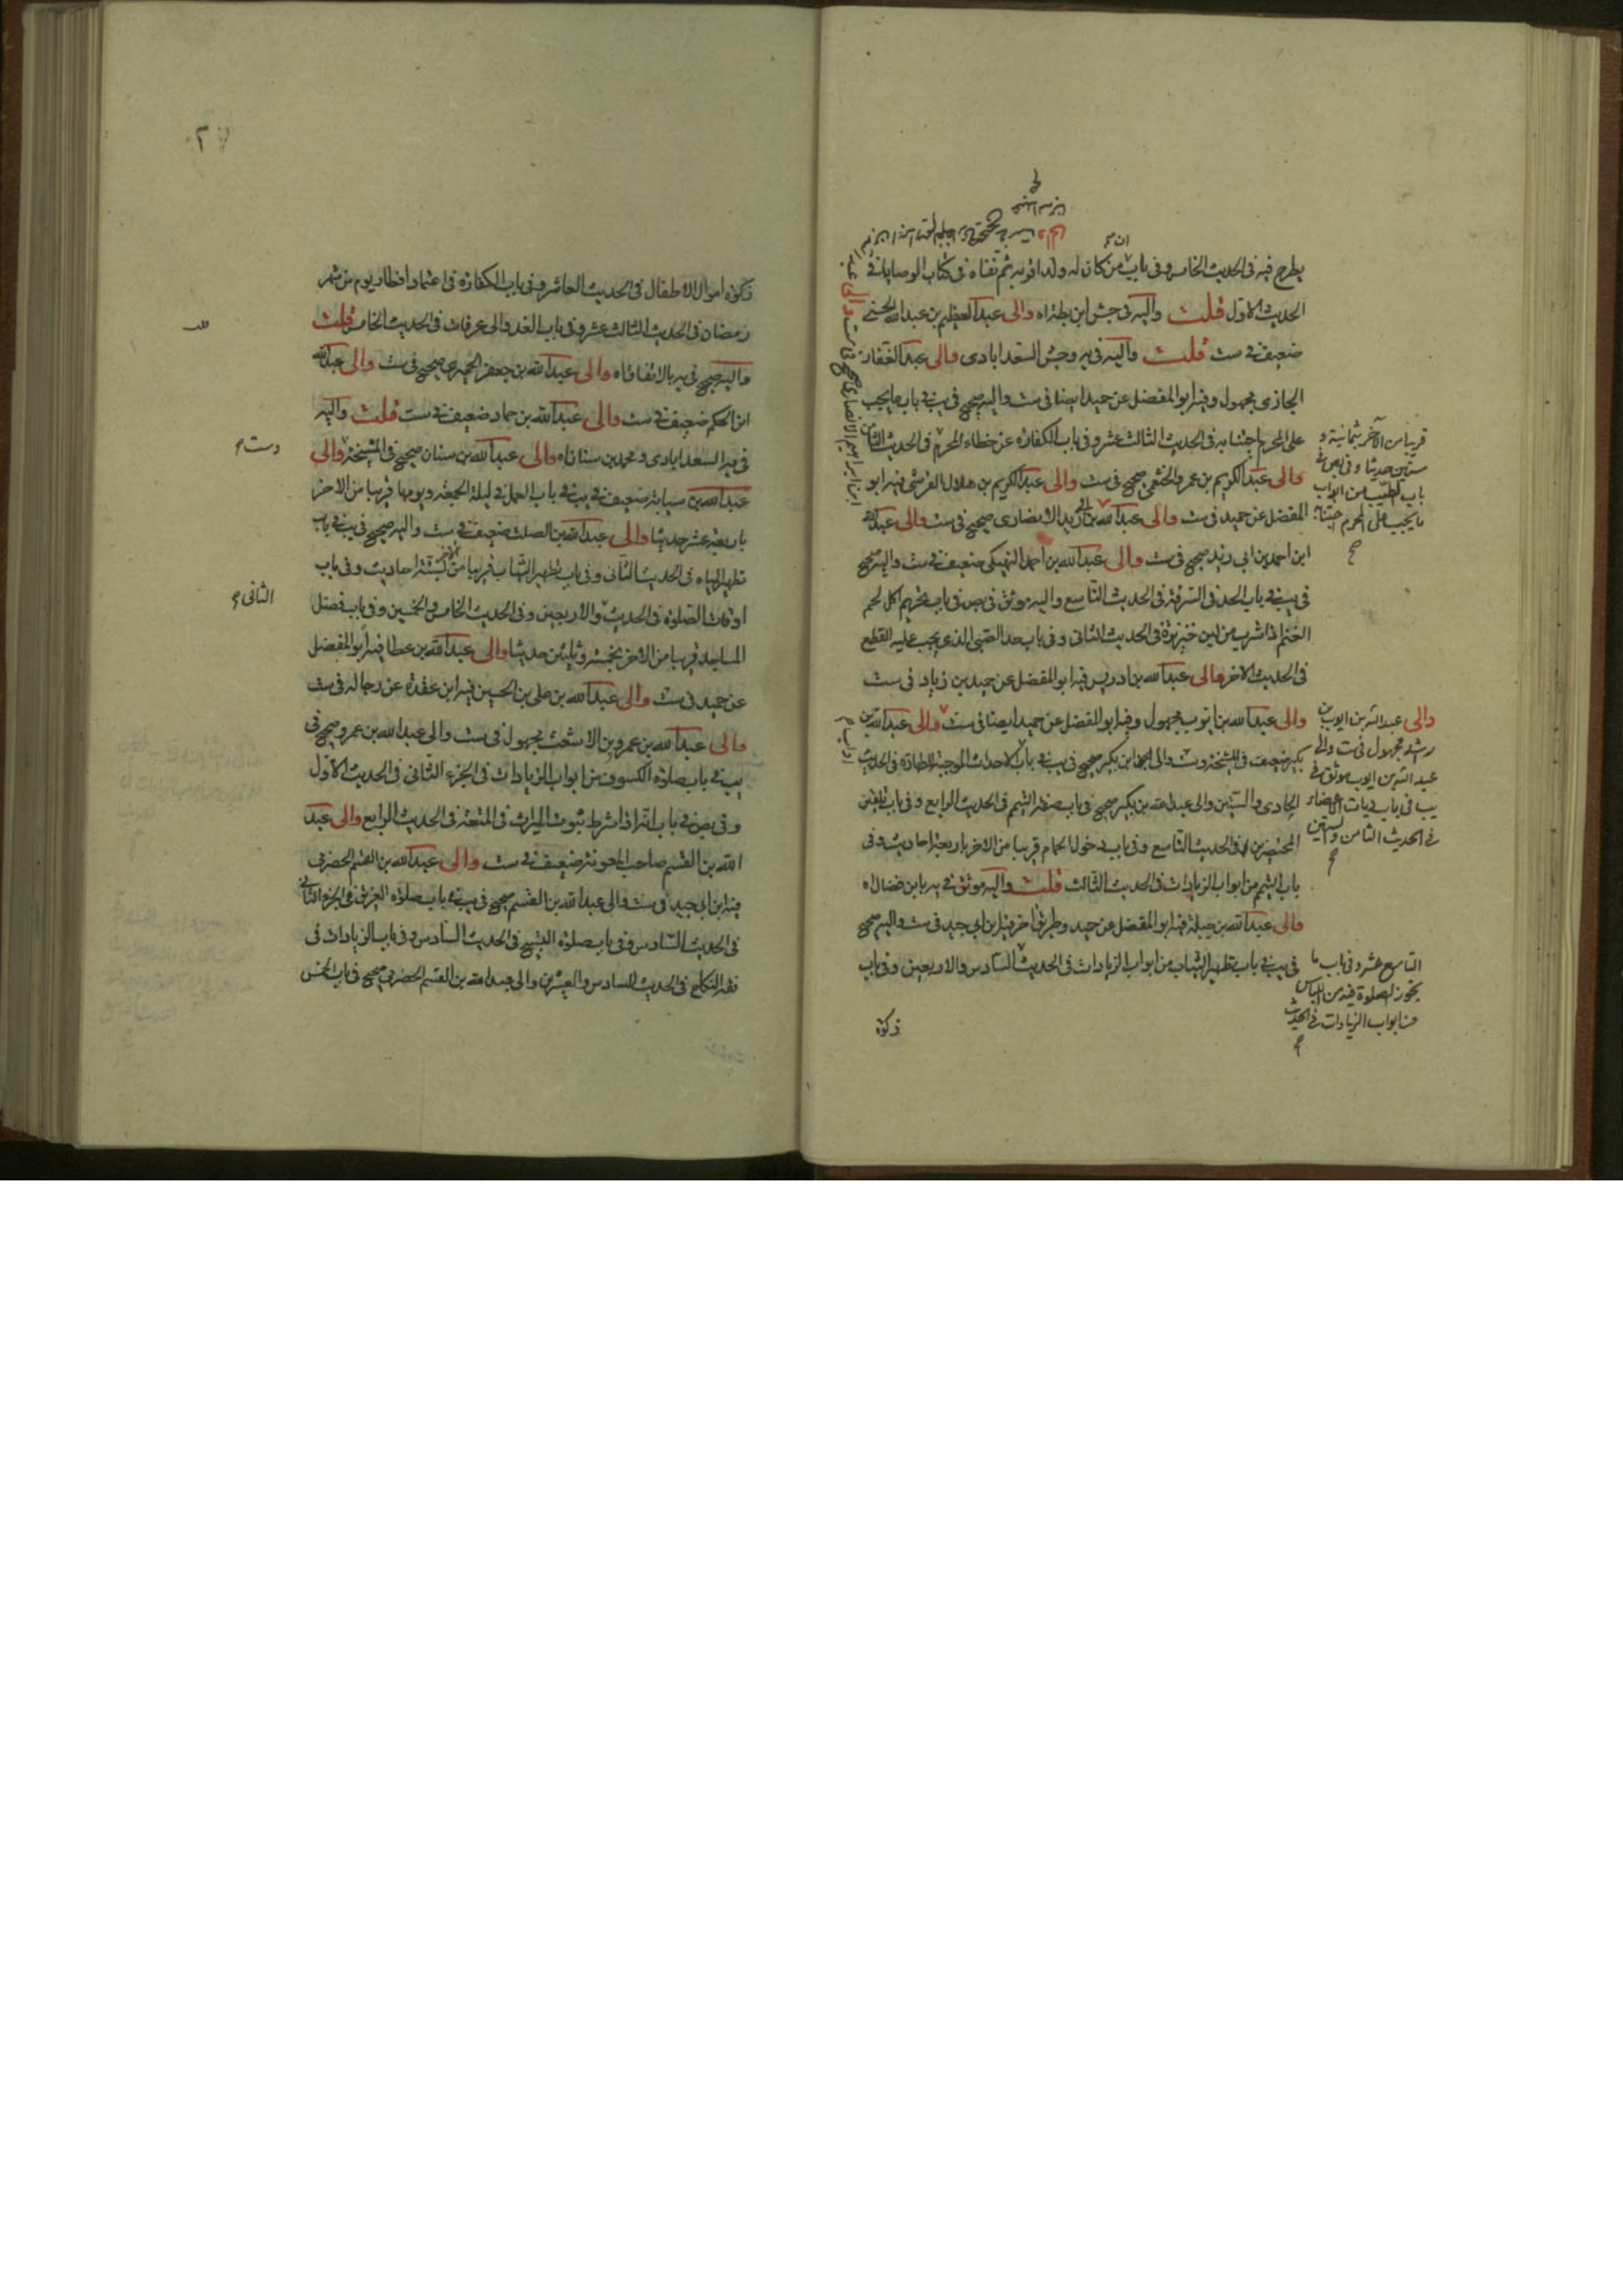 يطرح فيه فى الحديث الخامس وفى باب من كان له ولد اقر به ثم نفاه فى كتاب الوصايا فى
الحديث الاول قلت واليه فى جش ابن بطه اه والى عبد العظيم بن عبد الله الحسنى
ضعيف فى ست قلت واليه فى يه وجش السعدابادى والى عبد الغفار
الجازى مجهول وفيه ابو المفضل عن حميد ايضا فى ست واليه صحيح فى يب فى باب ما يجب
على المحرم اجتنابه فى الحديث الثالث عشر وفى باب الكفاره عن خطاء المحرم فى الحديث الثامن
والى عبد الكريم بن عمرو الخثعمى صحيح فى ست والى عبد الكريم بن هلال القرشى فيه ابو
المفضل عن حميد فى ست والى عبد الله بن الانصارى صحيح فى ست والى عبد الله
ابن احمد بن ابى زيد صحيح فى ست والى عبد الله بن احمد النهيكى ضعيف فى ست واليه صحيح
فى يب فى باب الحد فى السرقة فى الحديث التاسع واليه موثق فى بص فى باب تحريم اكل لحم
الغنم اذا شرب من لبن خنزيرة فى الحديث الثانى وفى باب حد الصبى الذى يجب عليه القطع
فى الحديث الاخر والى عبد الله بن ادريس فيه ابو المفضل عن حميد بن زياد فى ست
والى عبد الله بن ايوب مجهول وفيه ابو المفضل عن حميد ايضا فى ست والى عبد الله بن
بكير ضعيف فى المشيخة وست والى ابن بكير صحيح فى يب فى باب الاحداث الموجبة للطهارة فى الحديث
الحادى والستين والى عبد الله بن بكير صحيح فى باب صفة التيمم فى الحديث الرابع وفى باب تلقين
المحتضرين فى الحديث التاسع وفى باب دخول الحمام قريبا من الاخر باربعة احاديث وفى
باب التيمم من ابواب الزيادات فى الحديث الثالث قلت واليه موثق فى يه بابن فضال اه
والى عبد الله بن جبلة فيه ابو المفضل عن حميد وطريق اخر فيه ابن ابى جيد فى ست واليه صحيح
فى يب فى باب تطهير الثياب من ابواب الزيادات فى الحديث السادس والاربعين وفى باب
زكوة
قريبا من الآخر بثمانية و
ستين حديثا وفى بص فى
باب الطيب من ابواب
ما يجب على المحرم اجتنابه
والى عبد الله بن ايوب بن
راشد مجهول فى ست والى
عبد الله بن ايوب موثق فى
يب فى باب ديات الاعضاء
فى الحديث الثامن والستين
التاسع عشر وفى باب ما
يجوز الصلوة فيه من اللباس
من ابواب الزيادات فى الحديث
زكوة اموال الاطفال فى الحديث العاشر وفى باب الكفارة فى اعتماد افطار يوم من شهر
رمضان فى الحديث الثالث عشر وفى باب الغدو الى عرفات فى الحديث الخامس قلت
واليه صحيح فى يه بالاتفاق اه والى عبد الله بن جعفر الحميرى صحيح فى ست والى عبد الله
ابن الحكم ضعيف فى ست والى عبد الله بن حماد ضعيف فى ست قلت واليه
فى يه السعدابادى ومحمد بن سنان اه والى عبد الله بن سنان صحيح فى المشيخة والى
عبد الله بن سيابة ضعيف فى يب فى باب العمل فى ليلة الجمعة ويومها قريبا من الاخر
باربعة عشر حديثا والى عبد الله بن الصلت ضعيف فى ست واليه صحيح فى يب فى باب
تطهير المياه فى الحديث الثانى وفى باب تطهير الثياب قريبا من الاخر بستة احاديث وفى باب
اوقات الصلوة فى الحديث والاربعين وفى الحديث الخامس والخمسين وفى باب فضل
المساجد قريبا من الاخر بخمسة وثلثين حديثا والى عبد الله بن عطا فيه ابو المفضل
عن حميد فى ست والى عبد الله بن على بن الحسين فيه ابن عقدة عن رجاله فى ست
والى عبد الله بن عمرو بن الاشعث مجهول فى ست والى عبد الله بن عمرو صحيح فى
يب فى باب صلوة الكسوف من ابواب الزيادات فى الجزء الثانى فى الحديث الاول
وفى بص فى باب انه اذا شرط ثبوت الميراث فى المتعة فى الحديث الرابع والى عبد
الله بن القسم صاحب المعونة ضعيف فى ست والى عبد الله بن القسم الحضرمى
فيه ابن ابى جيد فى ست والى عبد الله بن القسم صحيح فى يب فى باب صلوة الغريق فى الجزء الثانى
فى الحديث السادس وفى باب صلوة التسبيح فى الحديث السادس وفى باب الزيادات فى
فقه النكاح فى الحديث السادس والعشرين والى عبد الله بن القسم الحضرمى صحيح فى باب الخمس
وست
الثانى